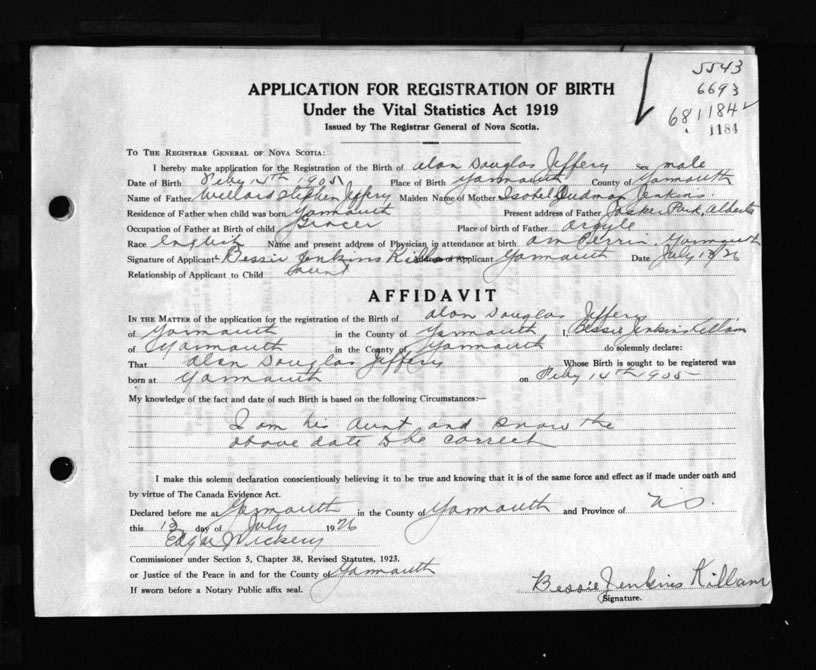 5543
6693
681184
1184
APPLICATION FOR REGISTRATION OF BIRTH
Under the Vital Statistics Act 1919
Issued by The Registrar General of Nova Scotia.
To The Registrar General of Nova Scotia:
I hereby make application for the Registration of the Birth of Alan Douglas Jeffery Sex male
Date of Birth Feby 14th 1905 Place of Birth Yarmouth County of Yarmouth
Name of Father Willard Stephen Jeffery Maiden Name of Mother Isobel Dudman Jenkins.
Residence of Father when child was born Yarmouth Present address of Father Jasper Park, Alberta
Occupation of Father at Birth of child Grocer Place of birth of Father Argyle
Race English Name and present address of Physician in attendance at birth Perrin. Yarmouth
Signature of Applicant Bessie Jenkins Killam of Applicant Yarmouth Date July 13/26
Relationship of Applicant to Child Aunt
AFFIDAVIT
In the Matter of the application for the registration of the Birth of Alan Douglas Jeffery
of Yarmouth in the County of Yarmouth I, Bessie Jenkins Killam
of Yarmouth in the County of Yarmouth do solemnly declare:
That Alan Douglas Jeffery Whose Birth is sought to be registered was
born at Yarmouth on Feby 14th 1905
My knowledge of the fact and date of such Birth is based on the following Circumstances:—
I am his Aunt and know the
above date to be correct
I make this solemn declaration conscientiously believing it to be true and knowing that it is of the same force and effect as if made under oath and
by virtue of The Canada Evidence Act.
Declared before me at Yarmouth in the County of Yarmouth and Province of N.S.
this 13 day of July 1926
Edgar Vickery
Commissioner under Section 5, Chapter 38, Revised Statutes, 1923.
or Justice of the Peace in and for the County of Yarmouth
If sworn before a Notary Public affix seal.
Bessie Jenkins Killam
Signature.